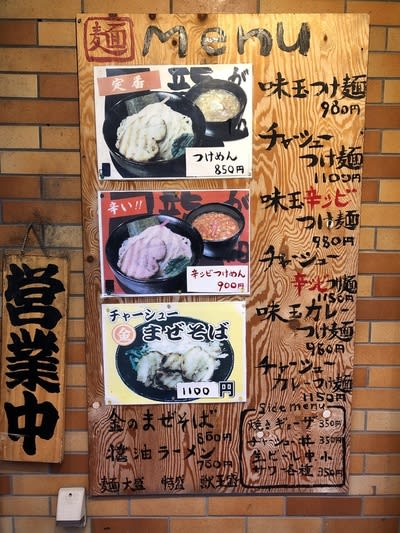 麺 menu
定番
つけめん
850円
辛い!!
辛シビつけめん
900円
チャーシュー
金 まぜそば
1100円
金のまぜそば
800円
醤油ラーメン
700円
麺大盛 特盛
味玉つけ麺
980円
チャーシュー
つけ麺
1100円
味玉辛シビ
つけ麺
980円
チャーシュー
辛シビつけ麺
1150円
味玉カレー
つけ麺
980円
チャーシュー
カレーつけ麺
1150円
Side menu
焼きギョーザ 350円
チャーシュー丼 350円
生ビール中・小
サワー各種 350円
営業中